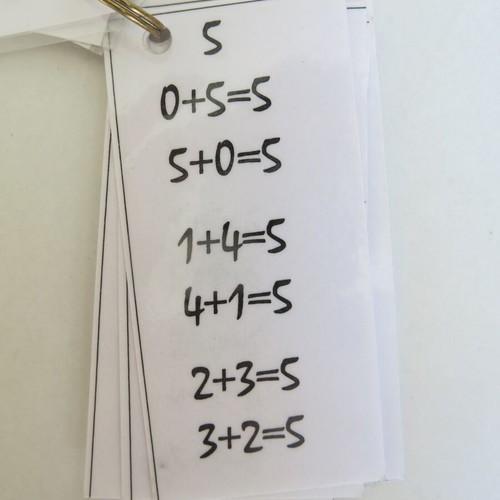 5
0+5=5
5+0=5
1+4=5
4+1=5
2+3=5
3+2=5